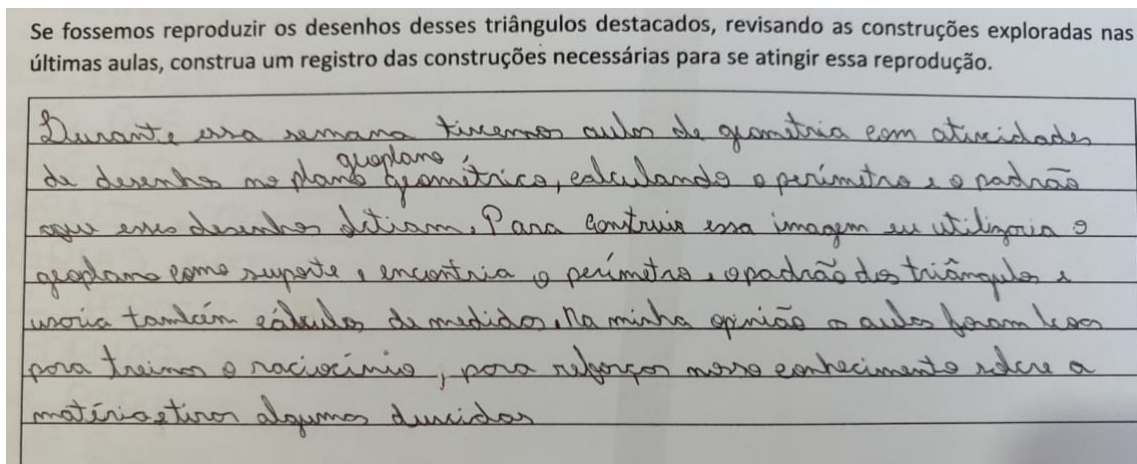 Se fossemos reproduzir os desenhos desses triângulos destacados, revisando as construções exploradas nas
últimas aulas, construa um registro das construções necessárias para se atingir essa reprodução.
Durante essa semana tivemos aulas de geometria com atividades
geoplano
de desenhos no plano geométrico, calculando o perímetro e o padrão
que esses desenhos ditiam. Para construir essa imagem eu utilizaria o
geoplano como suporte, encontria o perímetro, o padrão dos triângulos e
usaria também cálculos de medidas. Na minha opinião as aulas foram boas
para treinar o raciocínio, para reforçar nosso conhecimento sobre a
matéria e tirar algumas duvidas